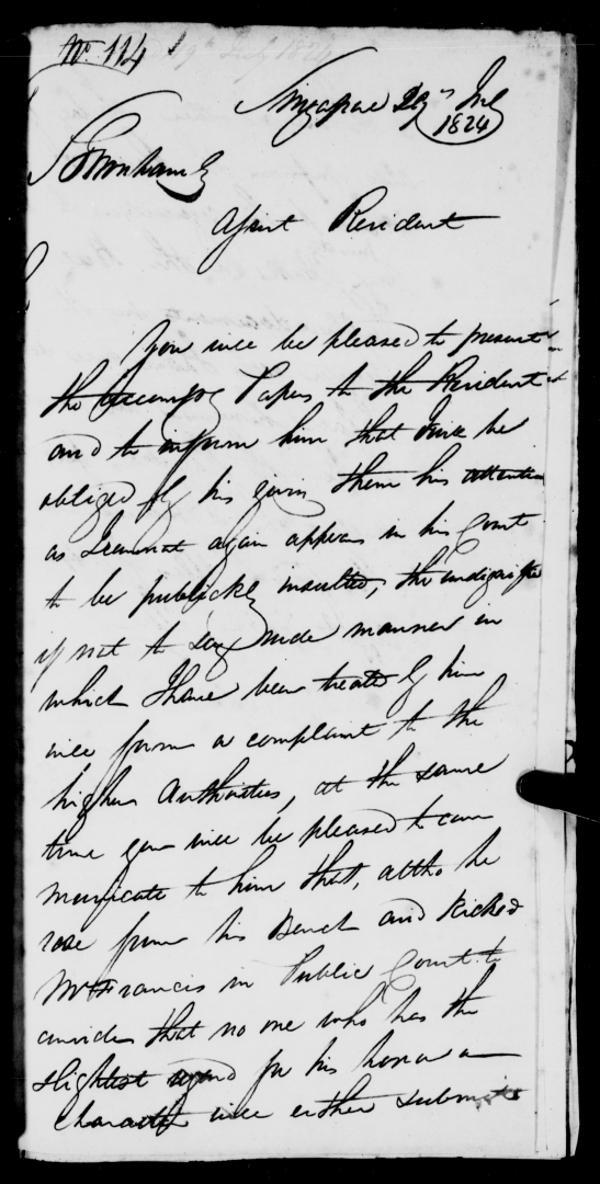 No. 114
Singapore 29th July
1824
S G Bonham Esq
Assist Resident
You will be pleased to present
the accompg Papers to the Resident
and to inform him that I will be
obliged by his giving them his attention
as I cannot again appear in his Court
to be publickly insulted, the undignified
if not to say rude manner in
which I have been treated by him
will form a complaint to the
higher Authorities, at the same
time you will be pleased to com
municate to him that, altho he
rose from his Bench and kicked
Mr Francis in Public Court to
consider that no one who has the
slightest regard for his honor or
character will either submit to